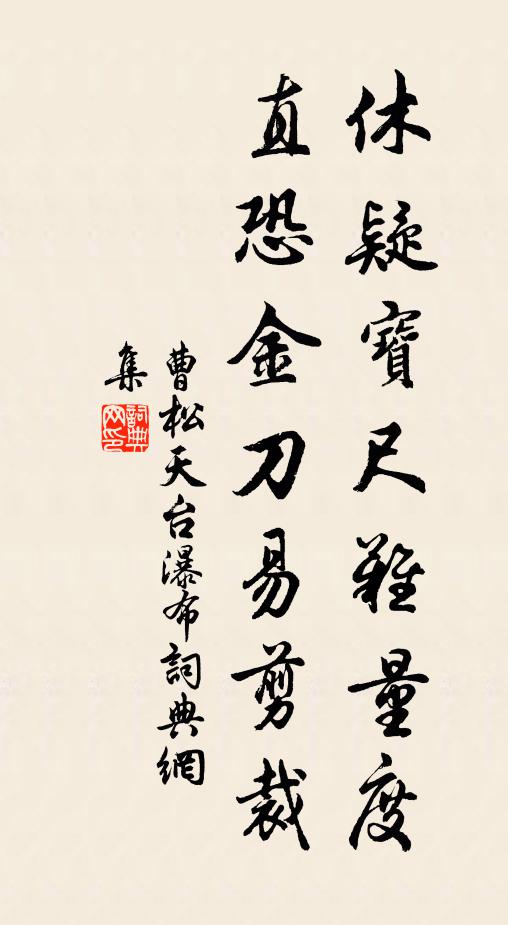 休疑寶尺難量度
直恐金刀易剪裁
曹松天台瀑布詞典網
集
詞典
网印